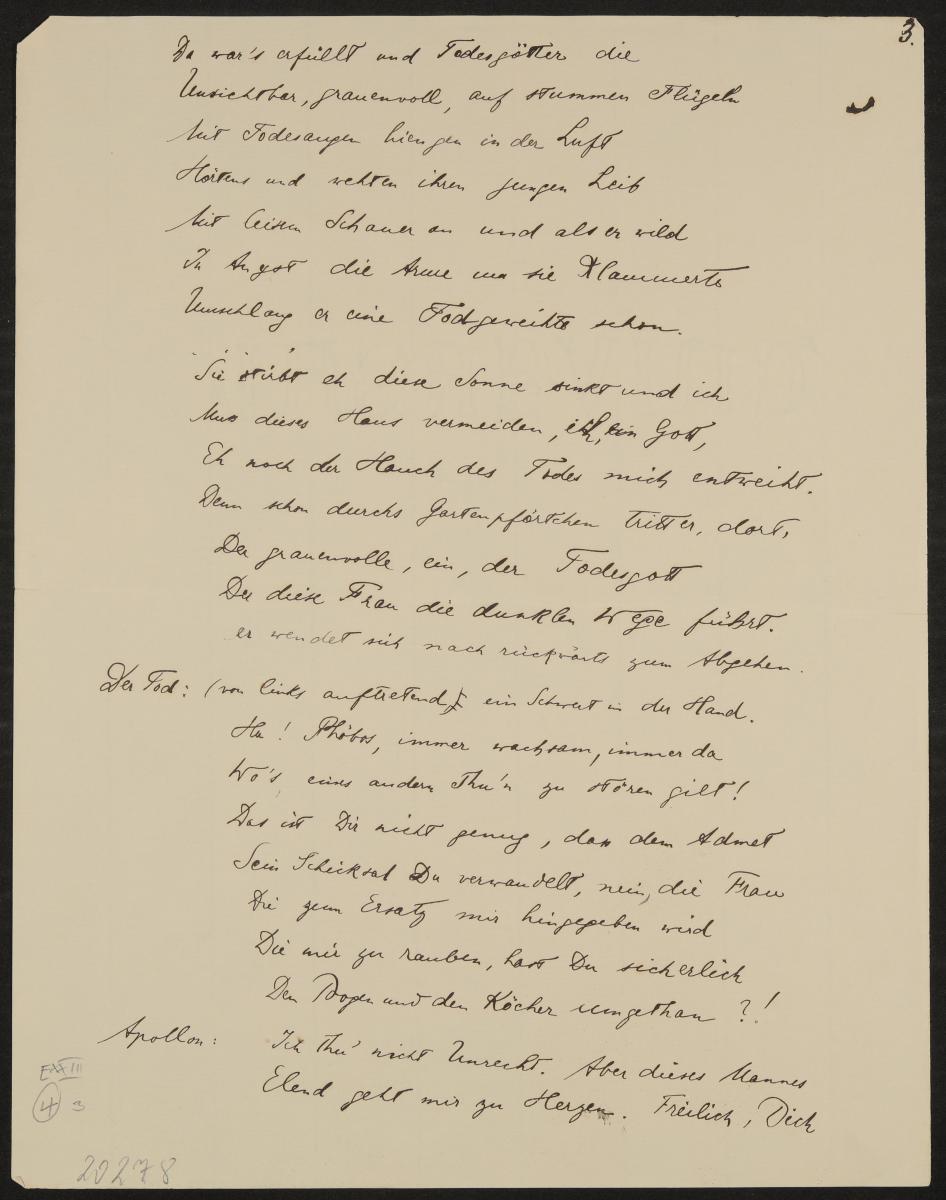 3.
Da war's erfüllt und Todesgötter die
Unsichtbar, grauenvoll, auf stummen Flügeln
Mit Todesaugen hiengen in der Luft
Hörtens und wehten ihren jungen Leib
Mit leisem Schauer an und als er wild
In Angst die Arme um sie klammerte
Umschlang er eine Todgeweihte schon.
Sie stirbt eh diese Sonne sinkt und ich
Muss dieses Haus vermeiden, ich, ein Gott,
Eh noch der Hauch des Todes mich entweiht.
Denn schon durchs Gartenpförtchen tritt er, dort,
Der grauenvolle, ein, der Todesgott
Der diese Frau die dunklen Wege führt.
er wendet sich nach rückwärts zum Abgehen.
Der Tod: (von links auftretend, ein Schwert in der Hand.
Ha! Phöbos, immer wachsam, immer da
Wo's eines andern Thu'n zu stören gilt!
Das ist Dir nicht genug, dass dem Admet
Sein Schicksal Du verwandelt, nein, die Frau
Die zum Ersatz mir hingegeben wird
Die mir zu rauben, hast Du sicherlich
Den Bogen und den Köcher umgethan?!
Apollon: Ich thu' nicht Unrecht. Aber dieses Mannes
Elend geht mir zu Herzen. Freilich, Dich
4 3
20278